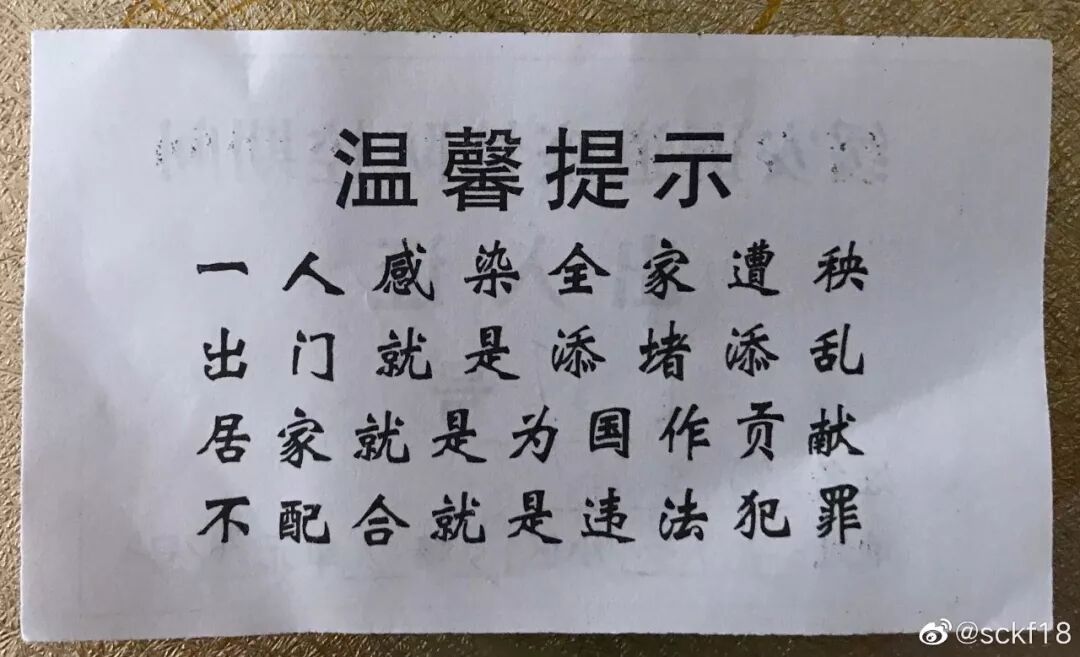 温馨提示
一人感染全家遭秧
出门就是添堵添乱
居家就是为国作贡献
不配合就是违法犯罪
@sckf18